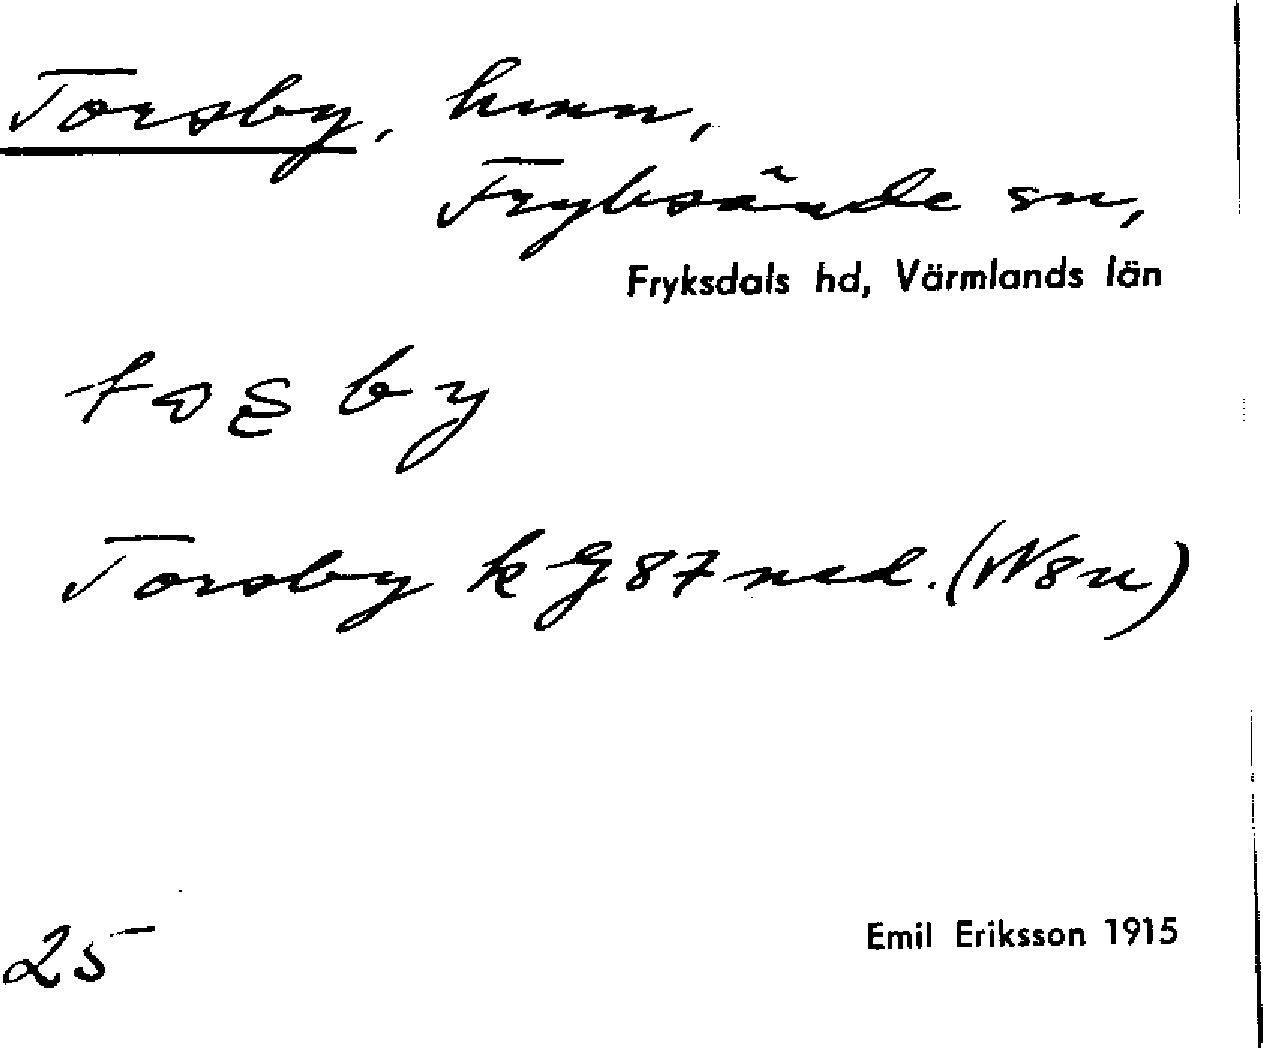 Torsby, hmn,
Fryksände sn,
Fryksdals hd, Värmlands län
by
Torsby k G 87 ned. (N sn)
25
Emil Eriksson 1915